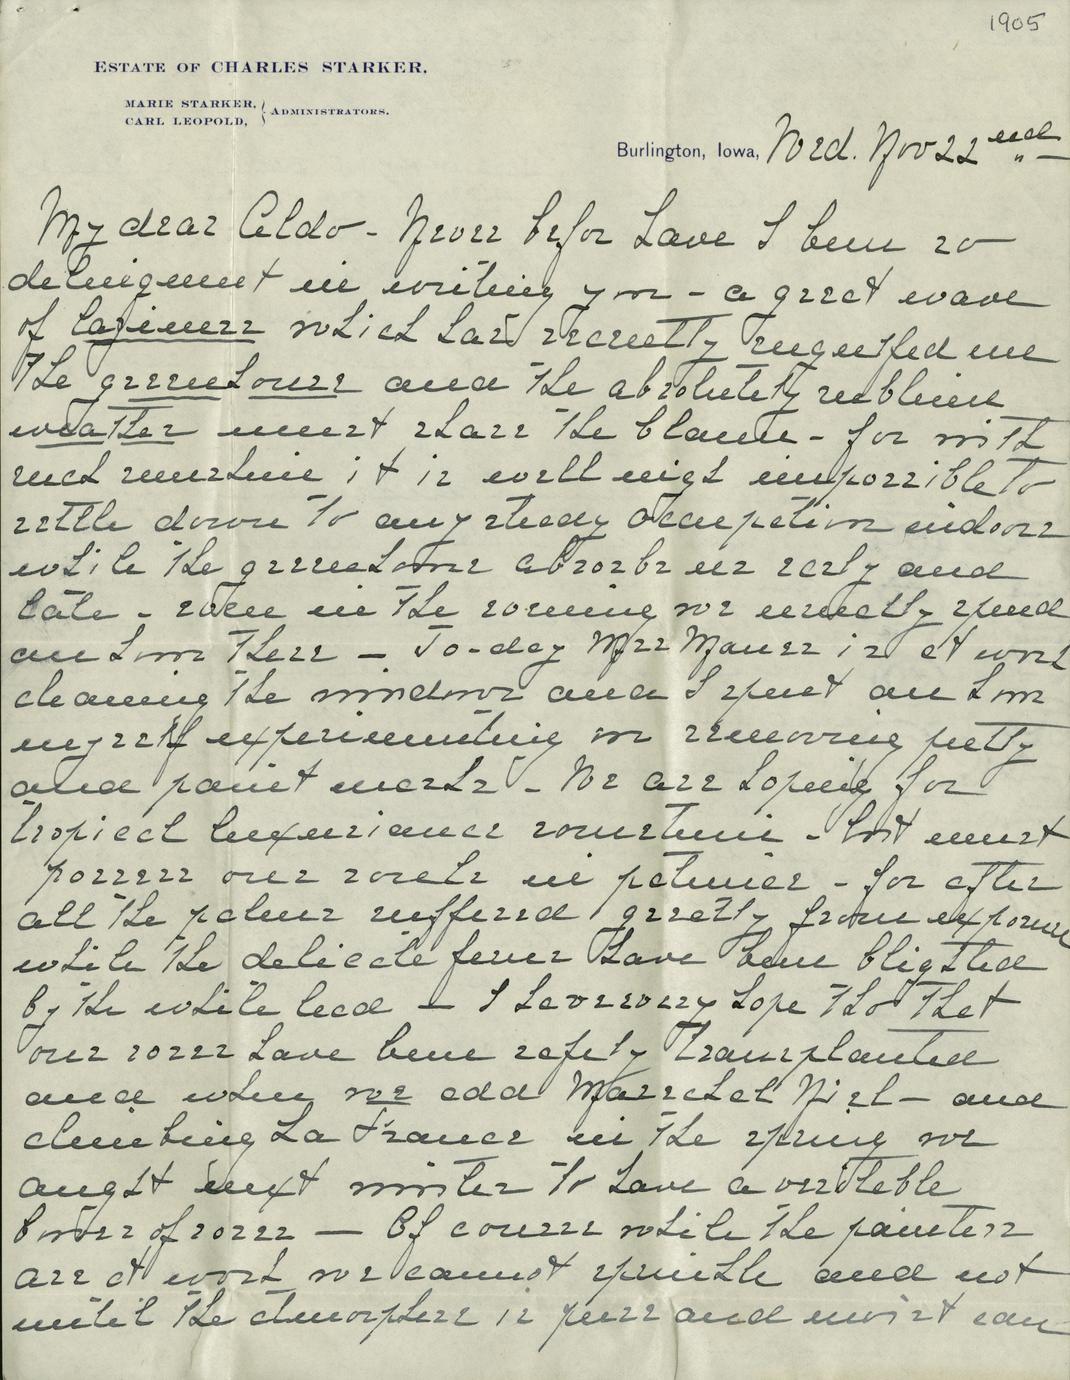 1905
ESTATE OF CHARLES STARKER.
MARIE STARKER,
CARL LEOPOLD, } ADMINISTRATORS.
Burlington, Iowa, Wed. Nov 22 nd
My dear Aldo - Never befor have I been so
delinquent in writing you - a great wave
of laziness which has recently engulfed me
the greenhouse and the absolutely sublime
weather must share the blame - for with
such sunshine it is well nigh impossible to
settle down to any steady occupation indoors
while the greenhouse absorbs us early and
late - even in the evening we usually spend
an hour there - To-day Mrs Maner is at work
cleaning the windows and I spent an hour
myself experimenting on removing putty
and paint marks - We are hoping for
tropical luxuriance sometime - but must
possess our souls in patience - for after
all the palms suffered greatly from exposure
while the delicate ferns have been blighted
by the white lead - I heavenly hope tho that
our roses have been safely transplanted
and when we add Marechal Niel - and
climbing La France in the spring we
aught next winter to have a veritable
bower of roses - Of course while the painters
are at work we cannot sprinkle and not
until the atmosphere is pure and moist can